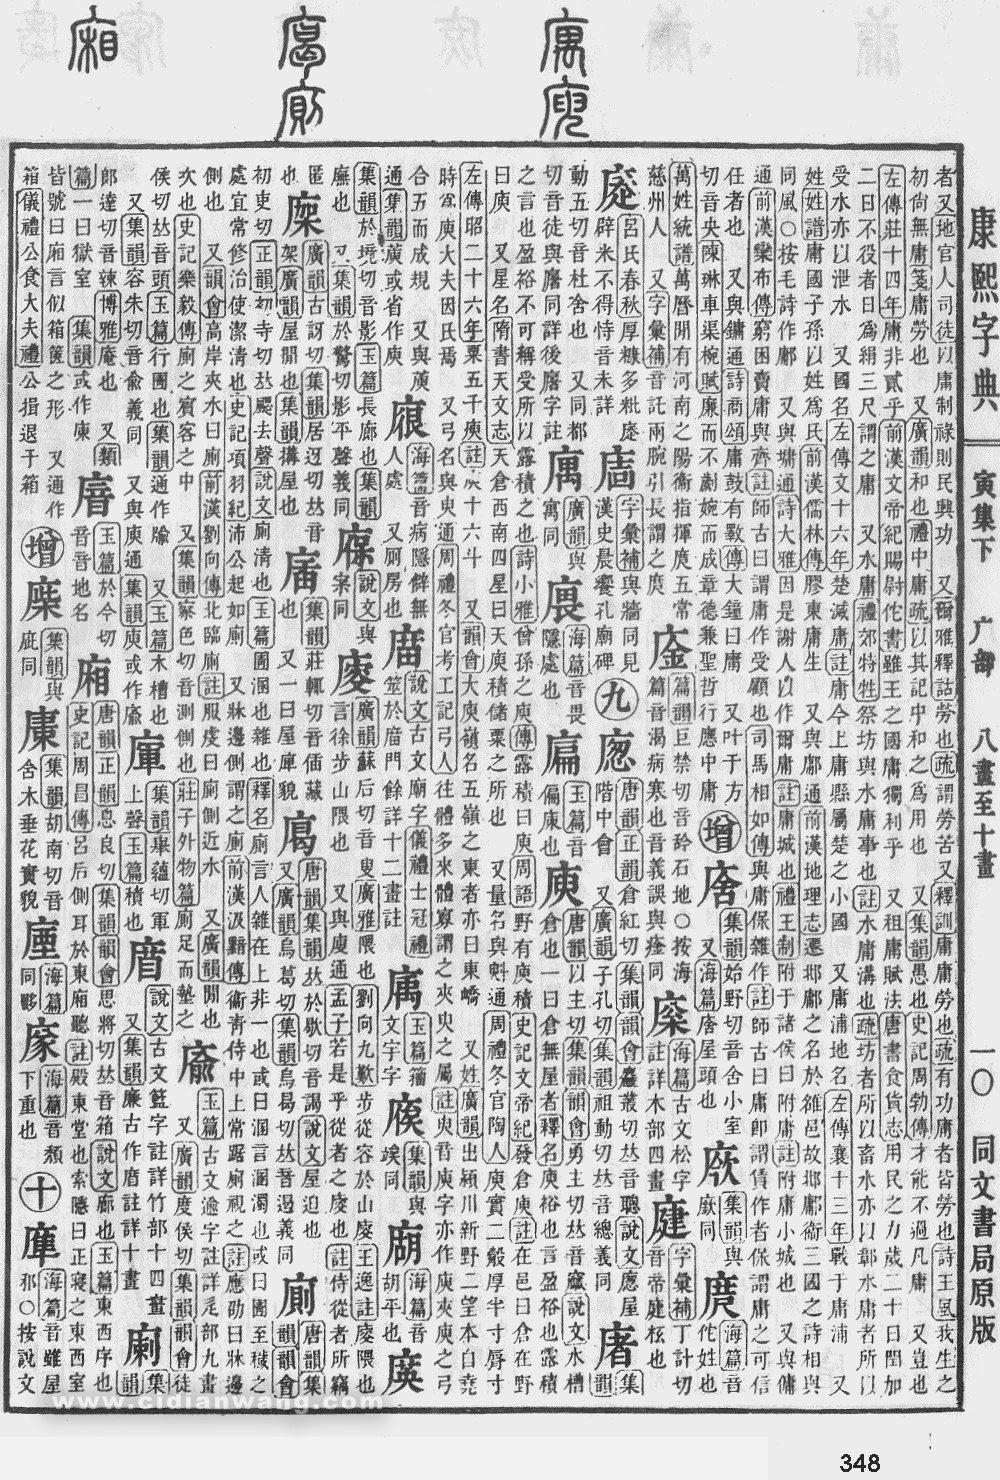 康熙字典 寅集下 广部 八畫至十畫 一〇 同文書局原版
者又地官人司徒以庸制祿則民與功 又爾雅釋詁勞也疏謂勞苦又釋訓庸庸勞也疏有功庸者皆勞也詩王風我生之
初尚無庸箋庸勞也 又廣韻和也禮中庸疏以其記中和之爲用也 又集韻愚也史記周勃傳才能不過凡庸 又豈也
左傳莊十四年庸非貳乎前漢文帝紀賜尉佗書雖王之國庸獨利乎 又租庸賦法唐書食貨志用民之力歲二十日閏加
二日不役者日爲絹三尺謂之庸 又水庸禮郊特牲祭坊與水庸事也註水庸溝也疏坊者所以畜水亦以鄣水庸者所以
受水亦以泄水 又國名左傳文十六年楚滅庸註庸今上庸縣屬楚之小國 又庸浦地名左傳襄十三年戰于庸浦 又
姓姓譜庸國子孫以姓爲氏前漢儒林傳膠東庸生 又與鄘通前漢地理志遷邶鄘之名於雒邑故邶鄘衞三國之詩相與
同風〇按毛詩作鄘 又與墉通詩大雅因是謝人以作爾庸註庸城也禮王制附于諸侯曰附庸註附庸小城也 又與傭
通前漢欒布傳窮困賣庸於齊註師古曰謂庸作受顧也司馬相如傳與庸保雜作註師古曰庸卽謂賃作者保謂庸之可信
任者也 又與鏞通詩商頌庸鼓有斁傳大鐘曰庸 又叶于方
切音央陳琳車渠椀賦廉而不劌婉而成章德兼聖哲行應中庸
增
集韻始野切音舍小室
又海篇 屋頭也
集韻與
厥同
庹
海篇音
佗姓也
萬姓統譜萬曆閒有河南之陽衞指揮庹五常
慈州人 又字彙補音託兩腕引長謂之庹
篇韻巨禁切音 石地〇按海
篇音渴病寒也音義誤與痊同
海篇古文松字
註詳木部四畫
字彙補丁計切
音帝 庭也
呂氏春秋厚糠多粃
辟米不得恃音未詳
字彙補與牆同見
漢史晨饗孔廟碑
九
唐韻正韻倉紅切集韻韻會麤叢切
階中會 又廣韻子孔切集韻祖動切 音總義同
集韻
動五切音杜舍也 又同都
切音徒與廜同詳後廜字註
廣韻與
寓同
海篇音畏
隱處也
玉篇音
偏 也
庾
唐韻以主切集韻韻會勇主切 音 說文水槽
倉也一曰倉無屋者釋名庾裕也言盈裕也露積
之言也盈裕不可稱受所以露積之也詩小雅曾孫之庾傳露積曰庾周語野有庾積史記文帝紀發倉庾註在邑曰倉在野
曰庾 又星名隋書天文志天倉西南四星曰天庾積儲粟之所也 又量名與 通周禮冬官陶人庾實二觳厚半寸脣寸
左傳昭二十六年粟五千庾註庾十六斗 又韻會大庾嶺名五嶺之東者亦曰東嶠 又姓廣韻出潁川新野二望本自堯
時 庾大夫因氏焉 又弓名與臾通周禮冬官考工記弓人往體多來體寡謂之夾臾之屬註臾音庾字亦作庾夾庾之弓
合五而成規 又與
通集韻 或省作庾
海篇音病隱僻無
人處 又厠房也
說文古文廟字儀禮士冠禮
筮于庿門餘詳十二畫註
玉篇籀
文宇字
集韻與
同
海篇音
胡平也
集韻於境切音影玉篇長廊也集韻
廡也 又集韻於驚切影平聲義同
說文與
同
廋
廣韻蘇后切音叟廣雅隈也劉向九歎步從容於山廋王逸註廋隈也
言徐步山隈也 又與廋通孟子若是乎從者之廋也註侍從者所竊
匿
也
廣韻古訝切集韻居迓切 音
架廣韻屋閒也集韻搆屋也
集韻莊輒切音偛藏
也 又一曰屋庳貌
唐韻集韻 於歇切音謁說文屋迫也
又廣韻烏葛切集韻烏曷切 音遏義同
廁
唐韻集韻
韻會
初吏切正韻初寺切 颸去聲說文廁淸也玉篇圊溷也雜也釋名廁言人雜在上非一也或曰溷言溷濁也或曰圊至穢之
處宜常修治使潔淸也史記項羽紀沛公起如廁 又牀邊側謂之廁前漢汲黯傳衞靑侍中上常踞廁視之註應劭曰牀邊
側也 又韻會高岸夾水曰廁前漢劉向傳北臨廁註服虔曰廁側近水 又廣韻閒也
次也史記樂毅傳廁之賓客之中 又集韻察色切音測側也莊子外物篇廁足而墊之
玉篇古文逾字註詳辵部九畫
又廣韻度侯切集韻韻會徒
侯切 音頭玉篇行圊也集韻通作
又集韻容朱切音兪義同 又與庾通集韻庾或作
又玉篇木槽也
集韻 蘊切
上聲玉篇積也
說文古文 字註詳竹部十四畫
又集韻廉古作 註詳十 畫
集
韻
郎達切音辣博雅庵也 又類
篇一曰獄室 集韻或作
玉篇於今切
音音地名
廂
唐韻正韻息良切集韻韻會思將切 音箱說文廊也玉篇東西序也
史記周昌傳呂后側耳於東廂聽註殿東堂也索隱曰正寢之東西室
皆號曰廂言似箱篋之形 又通作
箱儀禮公食大夫禮公揖退于箱
增
集韻與
庛同
集韻胡南切音
舍木垂花實貌
海篇
同
海篇音
下重也
十
海篇音雖屋
邪〇按說文
www.cidianwang.com
348